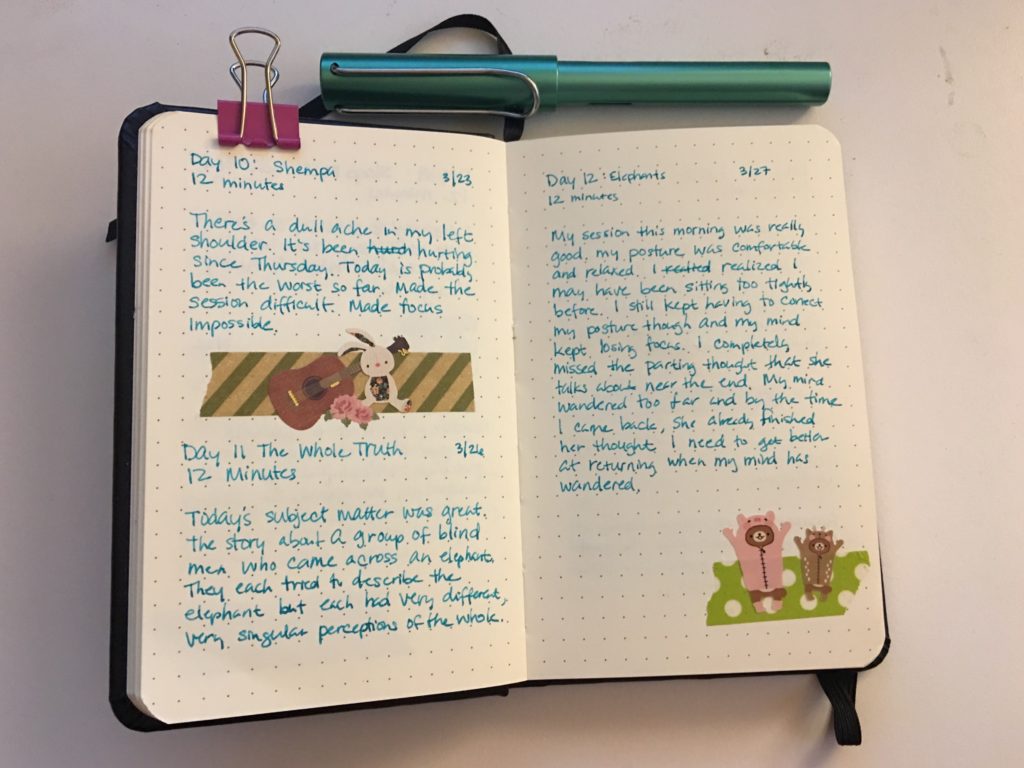 Day 10: Shempa 3/23
12 minutes
There's a dull ache in my left
shoulder. It's been hurting
since Thursday. Today is probably
been the worst so far. Made the
session difficult. Made focus
impossible.
Day 11 The Whole Truth 3/26
12 Minutes
Today's subject matter was great.
The story about a group of blind
men who came across an elephant.
They each tried to describe the
elephant but each had very different,
very singular perceptions of the whole.
Day 12: Elephants 3/27
12 minutes
My session this morning was really
good. my posture was comfortable
and relaxed. I realized I
may have been sitting too tightly
before. I still kept having to correct
my posture though and my mind
kept losing focus. I completely
missed the parting thought that she
talks about near the end. My mind
wandered too far and by the time
I came back, she already finished
her thought. I need to get better
at returning when my mind has
wandered.